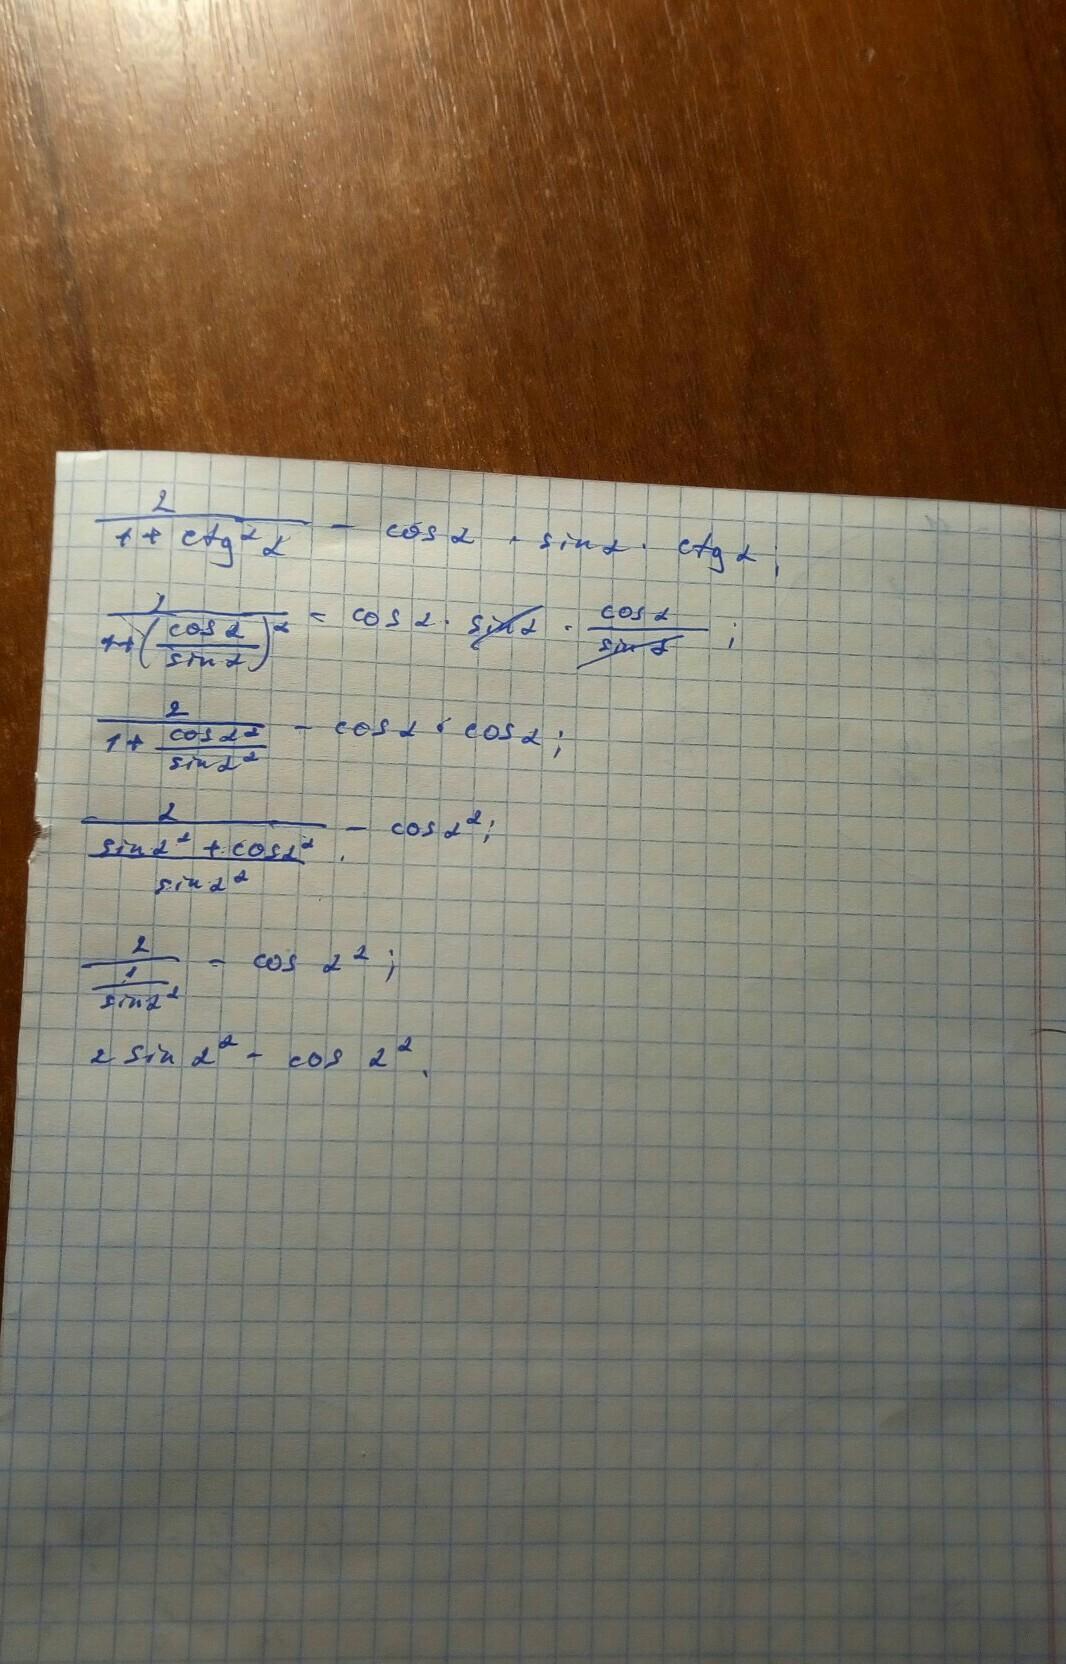 2/(1 + ctg²α) - cos α · sin α · ctg α;
1/(1 + (cos α/sin α)²) = cos α · sin α · cos α/sin α;
2/(1 + cos α²/sin α²) - cos α · cos α;
2/((sin α² + cos α²)/sin α²) - cos α²;
2/(1/sin α²) - cos α²;
2 sin α² - cos α².